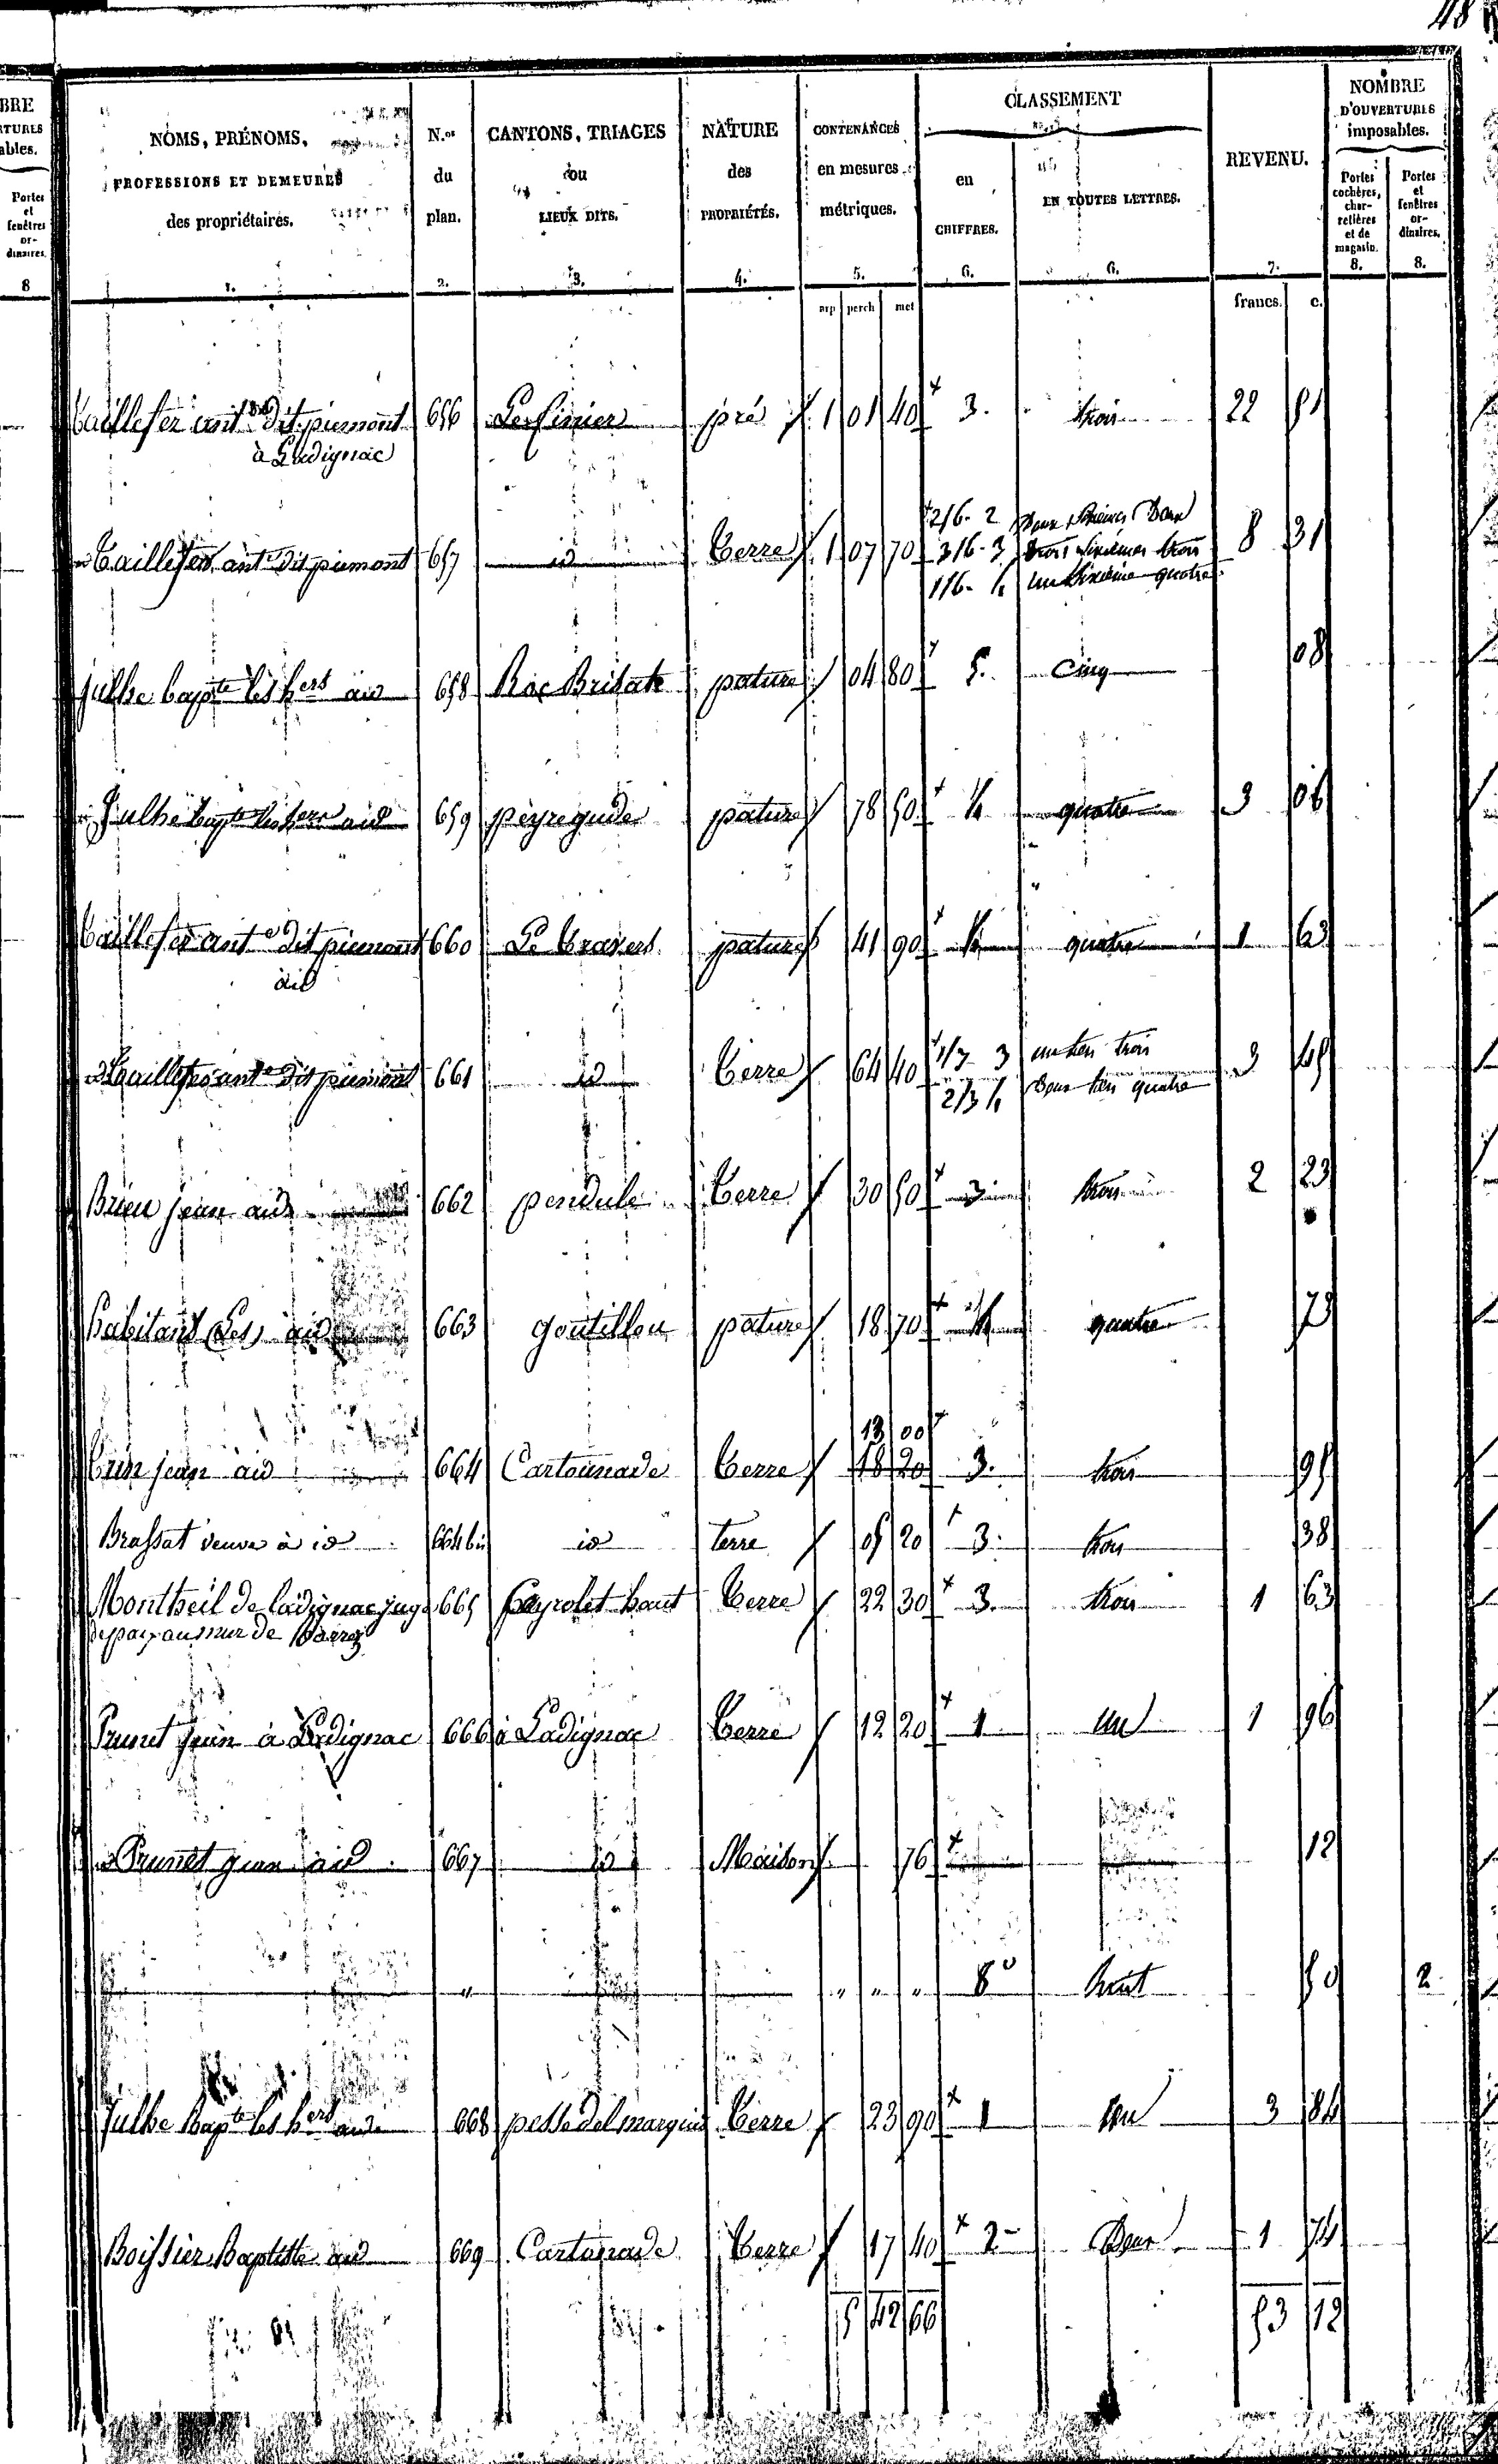 48
BRE
RTURES
ables.
Portes
et
fenêtres
or-
dinaires.
8
NOMS, PRÉNOMS,
PROFESSIONS ET DEMEURES
des propriétaires.
1.
N.os
du
plan.
2.
CANTONS, TRIAGES
ou
LIEUX DITS.
3.
NATURE
des
PROPRIÉTÉS.
4.
CONTENANCES
en mesures
métriques.
5.
arp perch met
CLASSEMENT
en
CHIFFRES.
6.
EN TOUTES LETTRES.
6.
REVENU.
7.
francs. c.
NOMBRE
D'OUVERTURES
imposables.
Portes
cochères,
char-
retières
et de
magasin.
8.
Portes
et
fenêtres
or-
dinaires.
8.
Taillefer ante Dit piemont 656 pré 1 01 40 3. trois 22 81
à Ladignac
Taillefer ante Dit piemont 657 id Terre 1 07 70 2/6. 2 Deux Sixièmes Deux 8 31
3/6. 3 trois Sixièmes trois
1/6. 4 un Sixième quatre
Julhe bapte les hers aid 658 Roc Brisat pature 04 80 5. Cinq 08
Julhe bapte les hers aid 659 peyregude pature 78 50 4 quatre 3 06
Taillefer ante Dit piemont 660 Le Travers pature 41 90 4 quatre 1 63
aid
Taillefer ante Dit piemont 661 id Terre 64 40 1/3 3 un tier trois 3 45
2/3 4 Deux tier quatre
Brieu jean aid 662 pendule Terre 30 50 3 trois 2 23
habitans (Les) aid 663 goutillou pature 18 70 4 quatre 73
13 00
jean aid 664 Cartounade Terre 18 20 3. trois 95
Brassat veuve à id 664 bis id terre 05 20 3. trois 38
Montheil de ladignac juge 665 peyrolet haut Terre 22 30 3. trois 1 63
de paix au mur de Barrez
Prunet jean à Ladignac 666 à Ladignac Terre 12 20 1 un 1 96
Prunet jean aid 667 id Maison 76 12
" " " " 8e huit 50 2
Julhe Bapte les hers aid 668 pesse del marquis Terre 23 90 1 un 3 84
Boissier Baptiste aid 669 Cartounade Terre 17 40 2 Deux 1 74
5 42 66 53 12